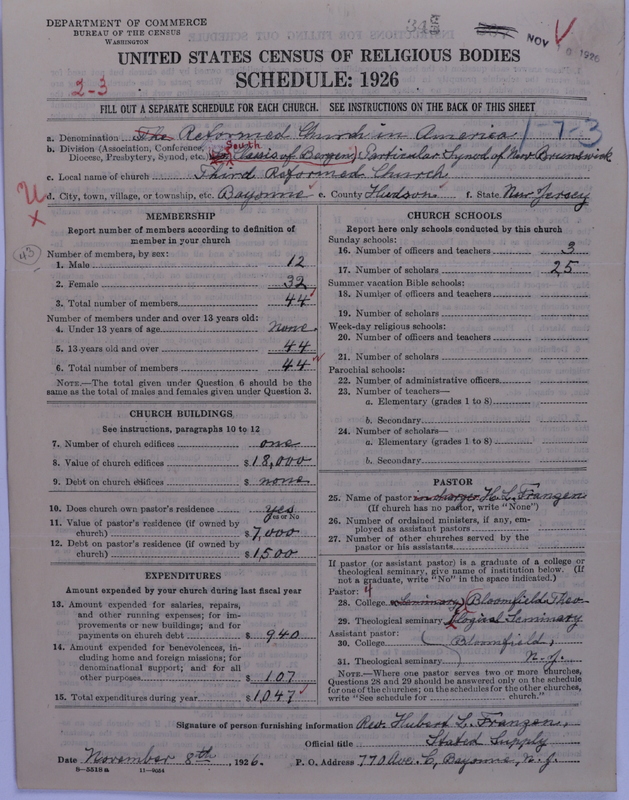 DEPARTMENT OF COMMERCE
BUREAU OF THE CENSUS
WASHINGTON
NOV 9 1926
UNITED STATES CENSUS OF RELIGIOUS BODIES
SCHEDULE: 1926
2-3
FILL OUT A SEPARATE SCHEDULE FOR EACH CHURCH. SEE INSTRUCTIONS ON THE BACK OF THIS SHEET
1-7-3
a. Denomination The Reformed Church in America
b. Division (Association, Conference, Diocese, Presbytery, Synod, etc.) South (Classis of Bergen) Particular Synod of New Brunswick
c. Local name of church Third Reformed Church
d. City, town, village, or township, etc. Bayonne e. County Hudson f. State New Jersey
43
MEMBERSHIP
Report number of members according to definition of
member in your church
Number of members, by sex:
1. Male 12
2. Female 32
3. Total number of members 44
Number of members under and over 13 years old:
4. Under 13 years of age None.
5. 13 years old and over 44
6. Total number of members 44
NOTE.—The total given under Question 6 should be the
same as the total of males and females given under Question 3.
CHURCH BUILDINGS
See instructions, paragraphs 10 to 12
7. Number of church edifices one
8. Value of church edifices $ 18,000
9. Debt on church edifices $ none
10. Does church own pastor's residence yes
Yes or No
11. Value of pastor's residence (if owned by
church) $ 7,000
12. Debt on pastor's residence (if owned by
church) $ 1500
EXPENDITURES
Amount expended by your church during last fiscal year
13. Amount expended for salaries, repairs,
and other running expenses; for im-
provements or new buildings; and for
payments on church debt $ 940
14. Amount expended for benevolences, in-
cluding home and foreign missions; for
denominational support; and for all
other purposes $ 107
15. Total expenditures during year $ 1,047
CHURCH SCHOOLS
Report here only schools conducted by this church
Sunday schools:
16. Number of officers and teachers 3
17. Number of scholars 25
Summer vacation Bible schools:
18. Number of officers and teachers
19. Number of scholars
Week-day religious schools:
20. Number of officers and teachers
21. Number of scholars
Parochial schools:
22. Number of administrative officers
23. Number of teachers—
a. Elementary (grades 1 to 8)
b. Secondary
24. Number of scholars—
a. Elementary (grades 1 to 8)
b. Secondary
PASTOR
25. Name of pastor in charge H. L. Frangen
(If church has no pastor, write "None")
26. Number of ordained ministers, if any, em-
ployed as assistant pastors
27. Number of other churches served by the
pastor or his assistants
If pastor (or assistant pastor) is a graduate of a college or
theological seminary, give name of institution below. (If
not a graduate, write "No" in the space indicated.)
Pastor:
28. College Seminary Bloomfield Theo
29. Theological seminary logical Seminary
Assistant pastor:
30. College Bloomfield,
31. Theological seminary N. J.
NOTE.—Where one pastor serves two or more churches,
Questions 28 and 29 should be answered only on the schedule
for one of the churches; on the schedules for the other churches,
write "See schedule for church."
Signature of person furnishing information Rev. Hubert L. Frangen,
Official title Stated Supply
Date November 8th, 1926. P. O. Address 770 Ave. C, Bayonne, N. J.
8—5518a 11—9054